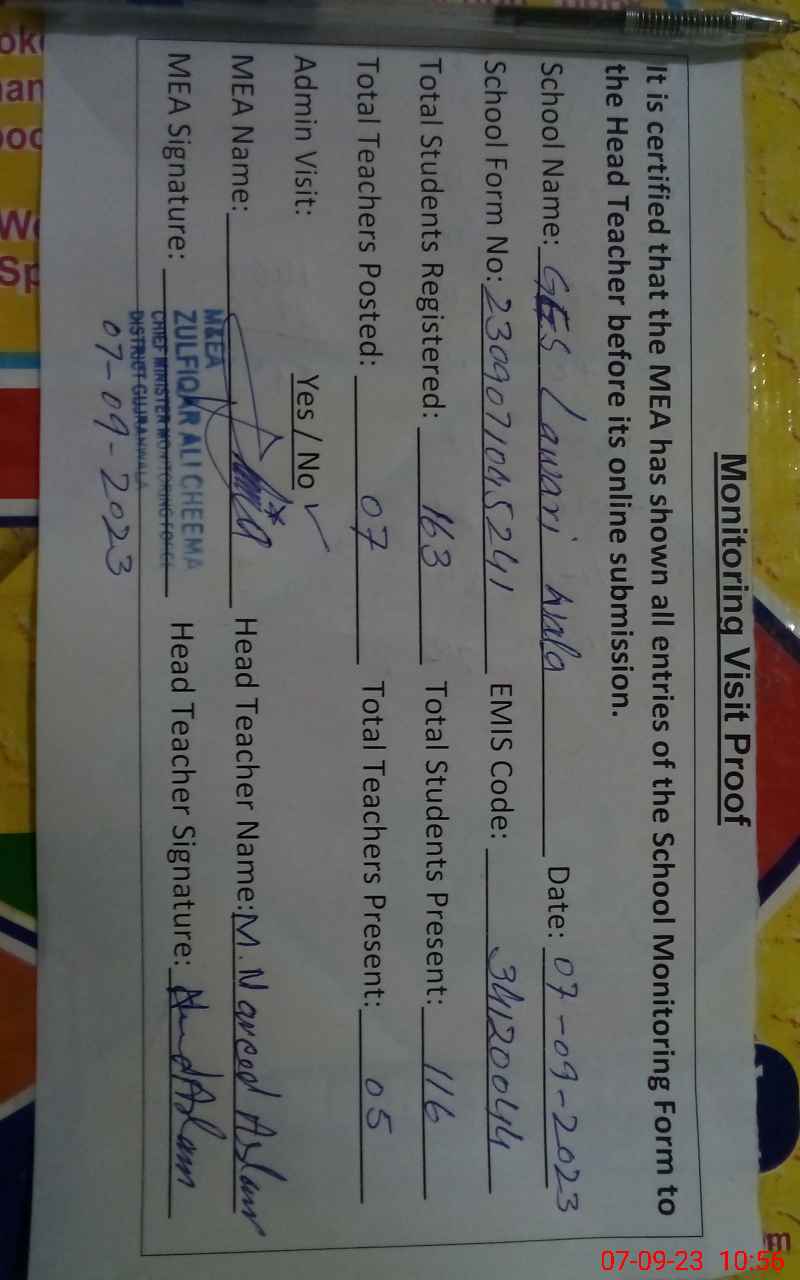 Monitoring Visit Proof
It is certified that the MEA has shown all entries of the School Monitoring Form to
the Head Teacher before its online submission.
School Name: GES Lawari wala Date: 07-09-2023
School Form No: 2309071045241 EMIS Code: 34120044
Total Students Registered: 163 Total Students Present: 116
Total Teachers Posted: 07 Total Teachers Present: 05
Admin Visit: Yes / No ✓
MEA Name: Head Teacher Name: M. Naveed Aslam
MEA Signature: Head Teacher Signature:
M&EA
ZULFIQAR ALI CHEEMA
CHIEF MINISTER MONITORING FORCE
DISTRICT GUJRANWALA
07-09-2023
07-09-23 10:56